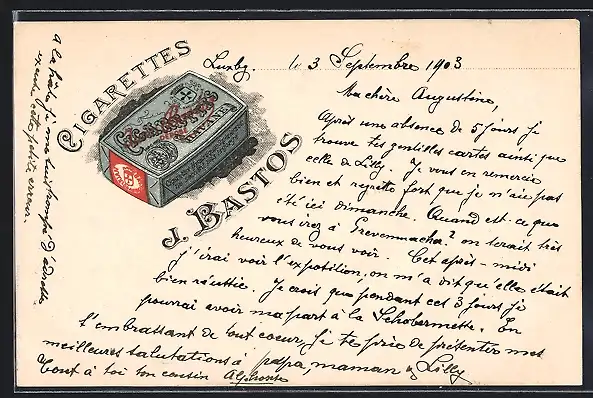 CIGARETTES
J. BASTOS
Luxbg. le 3 Septembre 1903
Ma chère Augustine,
Après une absence de 5 jours je
trouve tes gentilles cartes ainsi que
celle de Lilly. Je vous en remercie
bien et regrette fort que je n'aie pas
été ici dimanche. Quand est-ce que
vous irez à Grevenmacher? on serait très
heureux de vous voir. Cet après-midi
j'irai voir l'exposition, on m'a dit qu'elle était
bien réussie. Je crois que pendant ces 3 jours je
pourrai avoir ma part à la Schobermette. En
t'embrassant de tout coeur, je te prie de présenter mes
meilleures salutations à papa, maman & Lilly
Tout à toi ton cousin Alphonse
à la hâte, je me suis trompé d'adresse
excuse cette petite erreur.